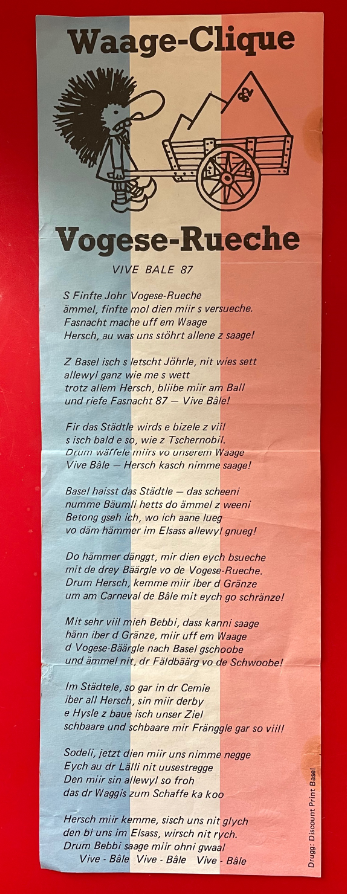 Waage-Clique
82
Vogese-Rueche
VIVE BALE 87
S Finfte Johr Vogese-Rueche
ämmel, finfte mol dien miir s versueche.
Fasnacht mache uff em Waage
Hersch, au was uns stöhrt allene z saage!
Z Basel isch s letscht Jöhrle, nit wies sett
allewyl ganz wie me s wett
trotz allem Hersch, bliibe miir am Ball
und riefe Fasnacht 87 — Vive Bâle!
Fir das Städtle wirds e bizele z viil
s isch bald e so, wie z Tschernobil.
Drum wäffele miirs vo unserem Waage
Vive Bâle — Hersch kasch nimme saage!
Basel haisst das Städtle — das scheeni
numme Bäumli hetts do ämmel z weeni
Betong gseh ich, wo ich aane lueg
vo däm hämmer im Elsass allewyl gnueg!
Do hämmer dänggt, mir dien eych bsueche
mit de drey Bäärgle vo de Vogese-Rueche.
Drum Hersch, kemme miir iber d Gränze
um am Carneval de Bâle mit eych go schränze!
Mit sehr viil mieh Bebbi, dass kanni saage
hänn iber d Gränze, miir uff em Waage
d Vogese-Bäärgle nach Basel gschoobe
und ämmel nit, dr Fäldbäärg vo de Schwoobe!
Im Städtele, so gar in dr Cemie
iber all Hersch, sin miir derby
e Hysle z baue isch unser Ziel
schbaare und schbaare mir Fränggle gar so viil!
Sodeli, jetzt dien miir uns nimme negge
Eych au dr Lälli nit uusestregge
Den miir sin allewyl so froh
das dr Waggis zum Schaffe ka koo
Hersch miir kemme, sisch uns nit glych
den bi uns im Elsass, wirsch nit rych.
Drum Bebbi saage miir ohni gwaal
Vive - Bâle Vive - Bâle Vive - Bâle
Drugg: Discount Print Basel